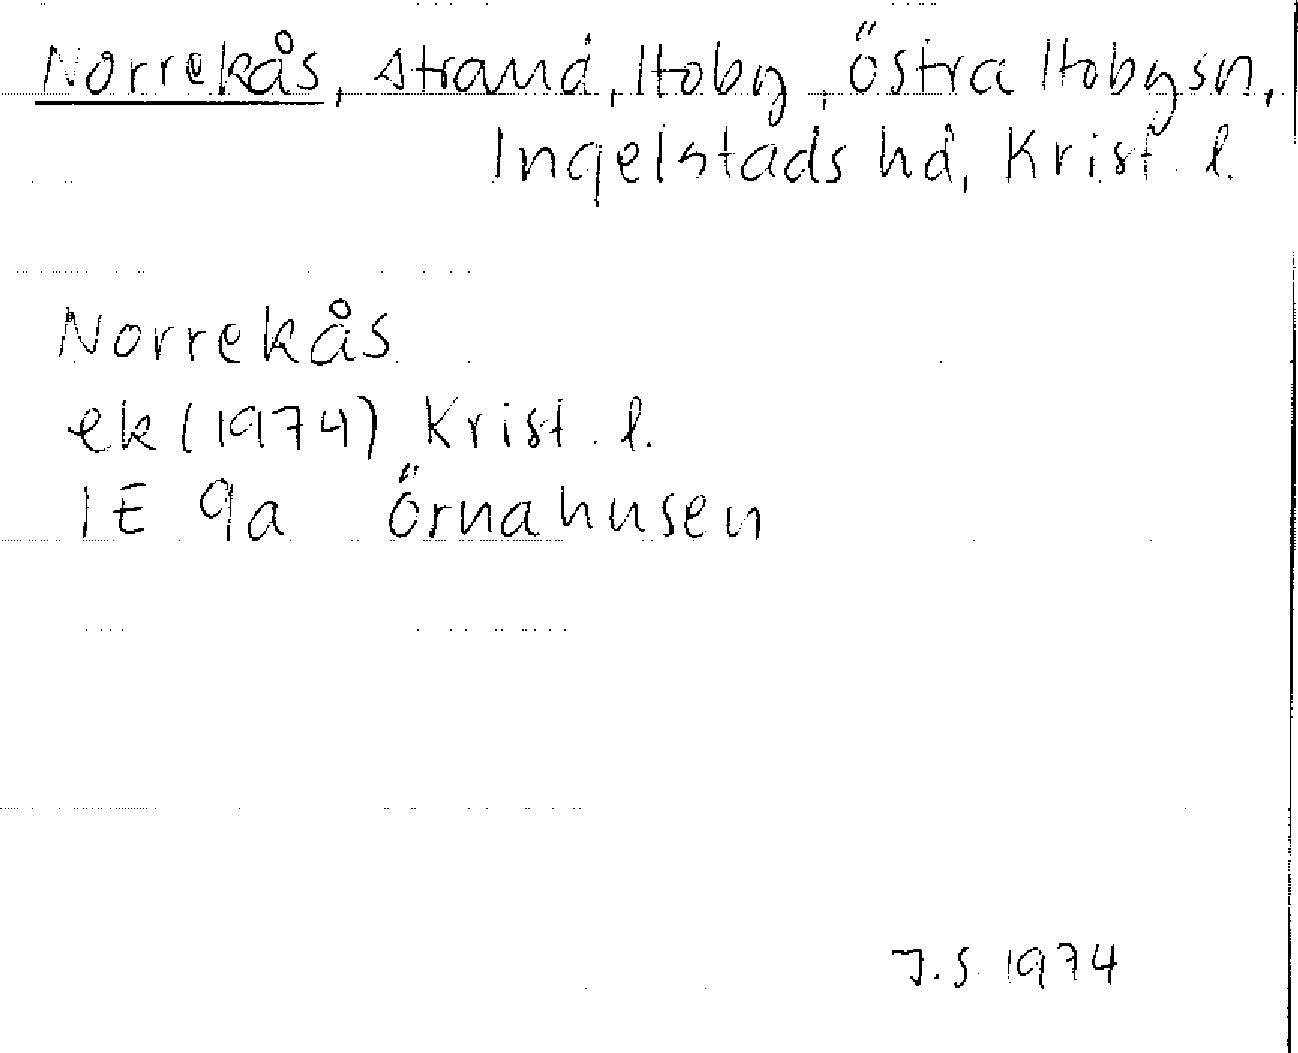 Norrekås, strand, Hoby, Östra Hoby sn,
Ingelstads hd, Krist. l.
Norrekås
ek (1974) Krist. l.
1E 9a Örnahusen
J.S 1974